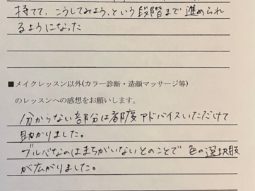 持てて、こうしてみよう、という段階まで進められ
るようになった
■メイクレッスン以外(カラー診断・造顔マッサージ等)
のレッスンへの感想をお願いします。
分からない部分は都度アドバイスいただけて
助かりました。
ブルベなのはまちがいないとのことで色の選択肢
が広がりました。